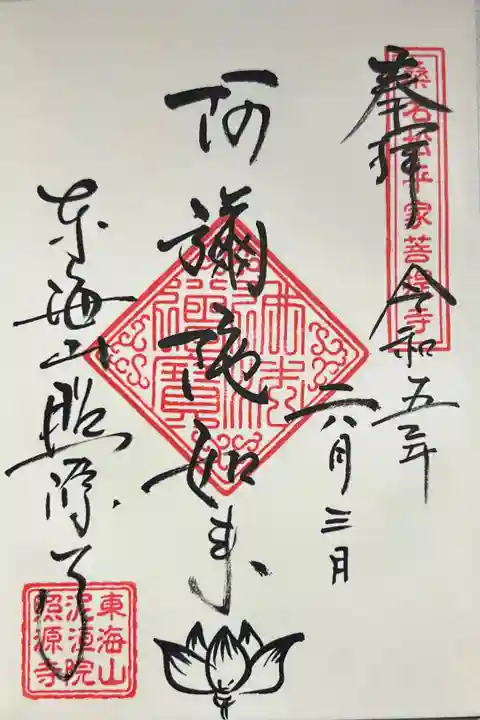 奉拝
桑名松平家菩提寺
令和五年
六月三日
阿彌陀如来
佛法僧寶
東海山照源寺
東海山
泥洹院
照源寺